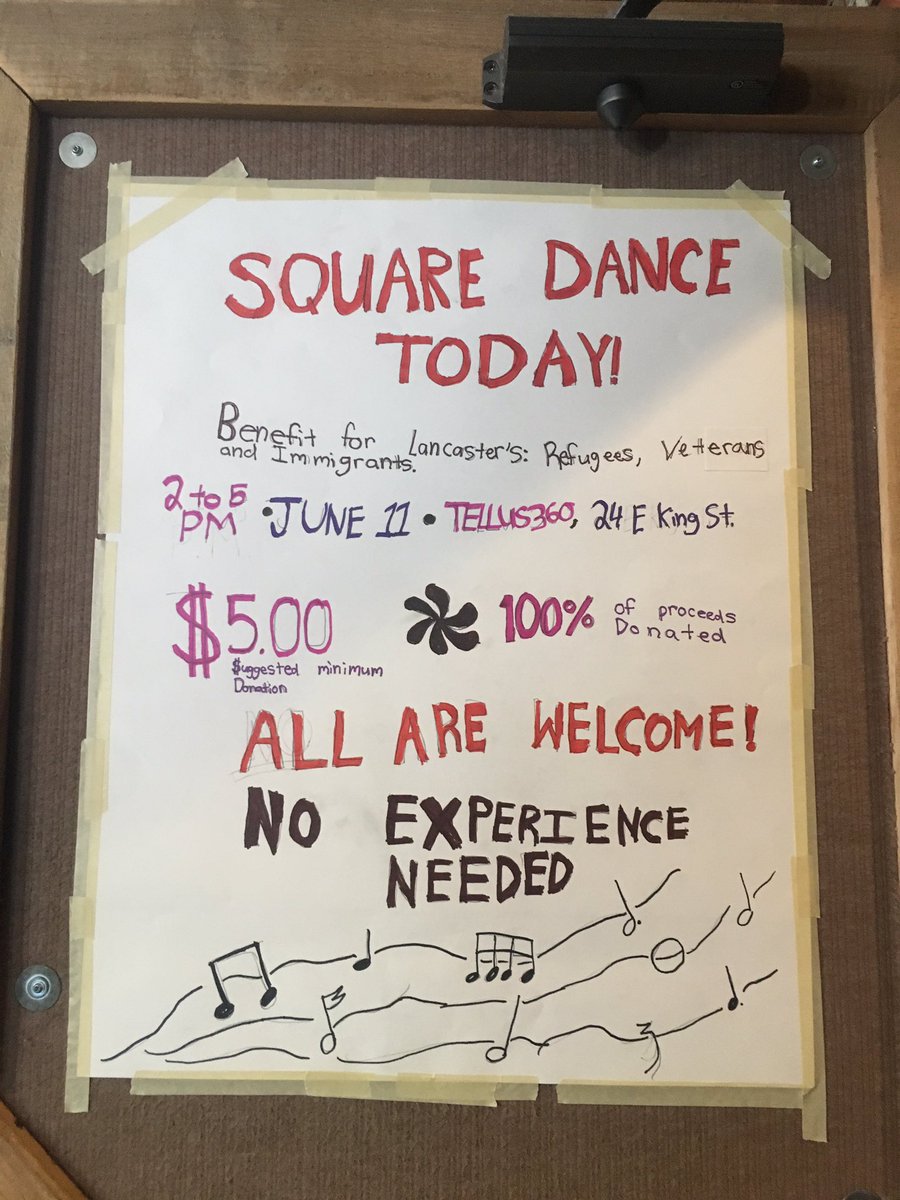 SQUARE DANCE
TODAY!
Benefit for Lancaster's: Refugees, Vetterans
and Immigrants.
2 to 5
PM • JUNE 11 • TELLUS360, 24 E King St.
$5.00
Suggested minimum
Donation
100% of proceeds
Donated
ALL ARE WELCOME!
NO EXPERIENCE
NEEDED